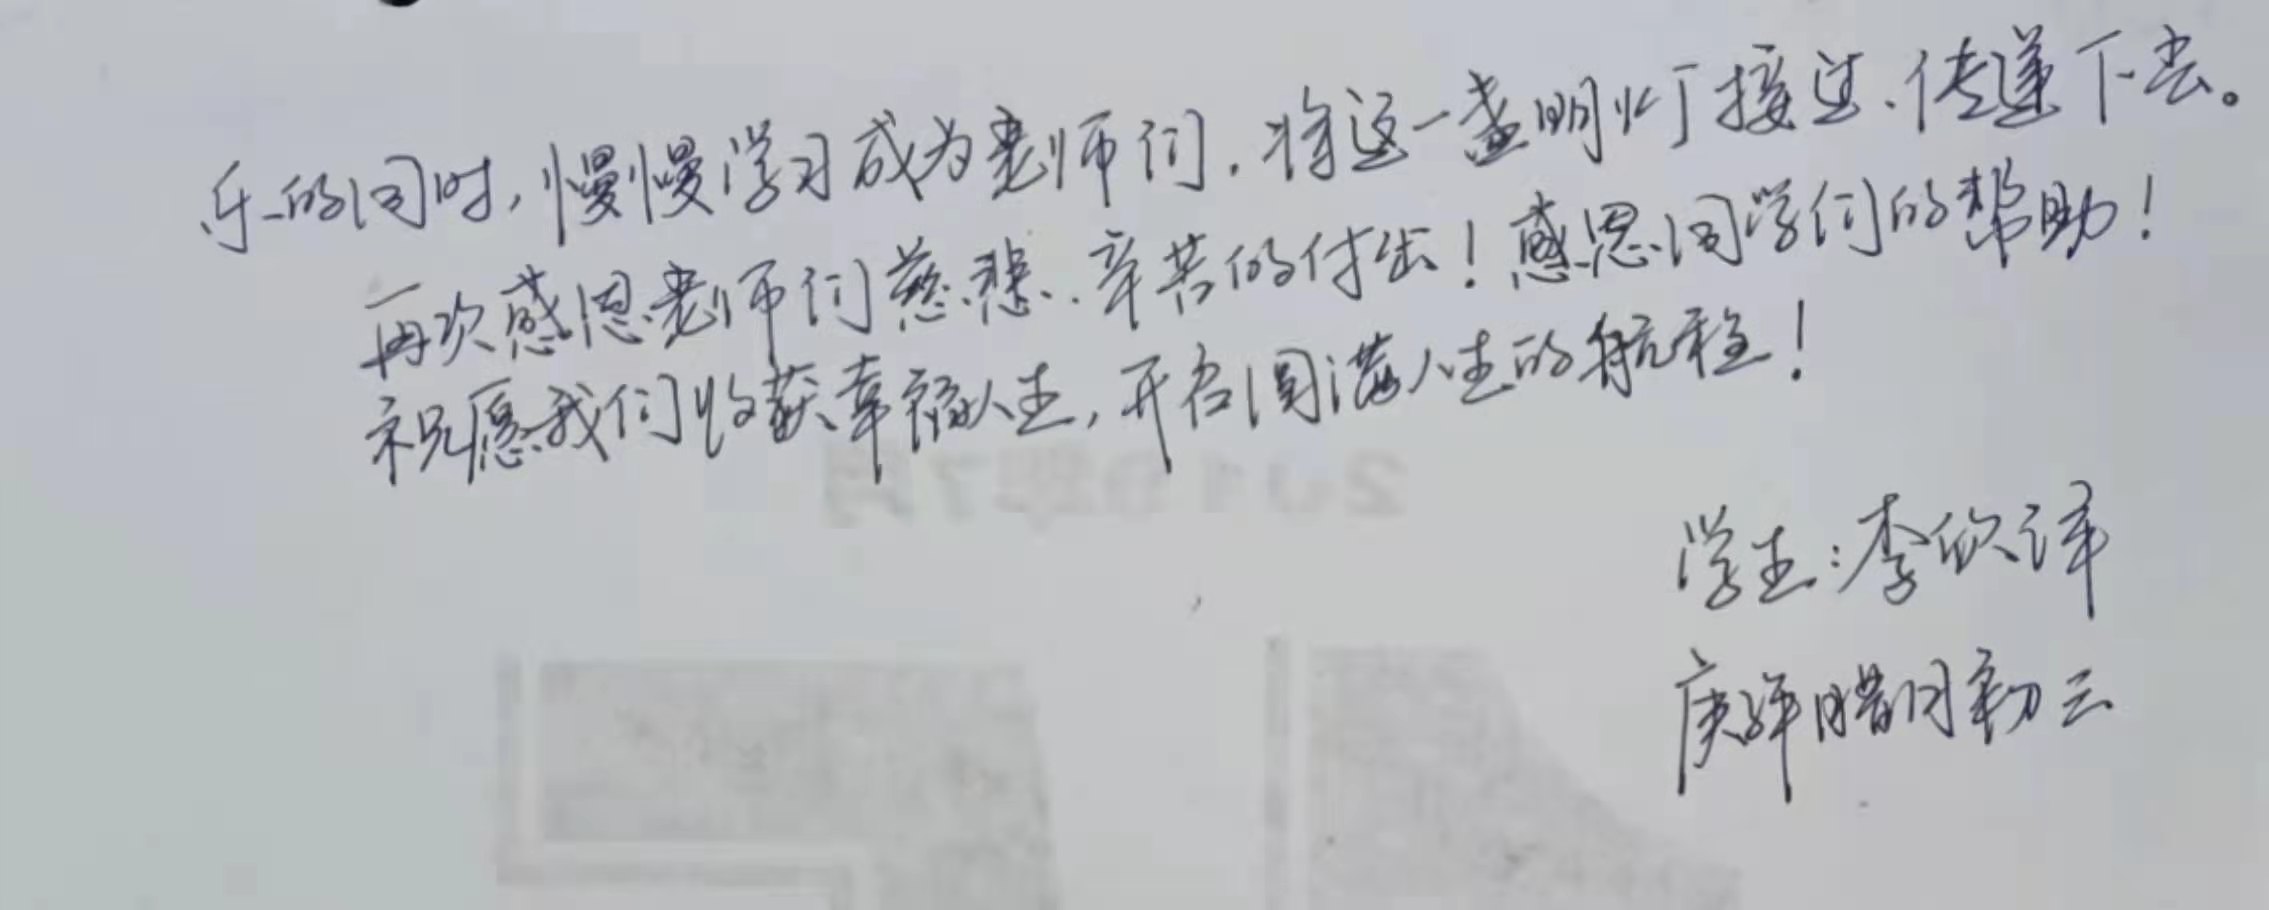 乐的同时,慢慢学习成为老师们,将这一盏明灯接过、传递下去。
再次感恩老师们慈悲、辛苦的付出!感恩同学们的帮助!
祝愿我们收获幸福人生,开启圆满人生的航程!
学生:李欣译
庚子年腊月初三